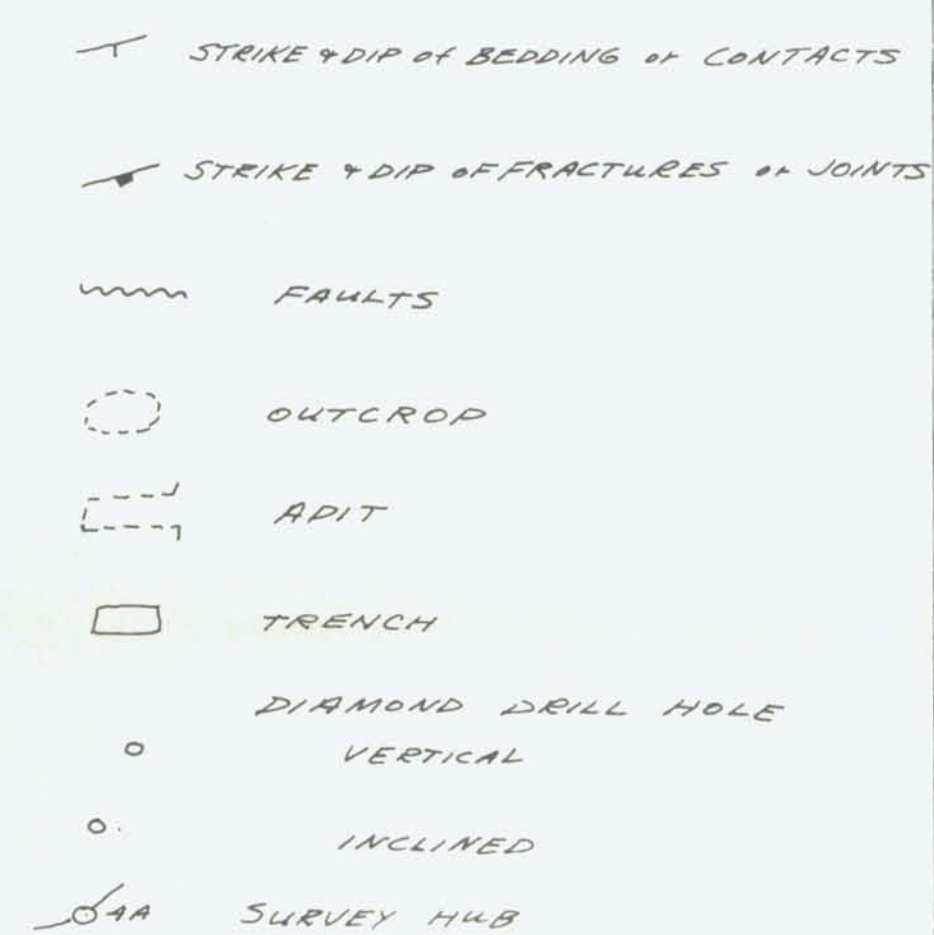 STRIKE & DIP of BEDDING or CONTACTS
STRIKE & DIP OF FRACTURES or JOINTS
FAULTS
OUTCROP
ADIT
TRENCH
DIAMOND DRILL HOLE
VERTICAL
INCLINED
4A SURVEY HUB